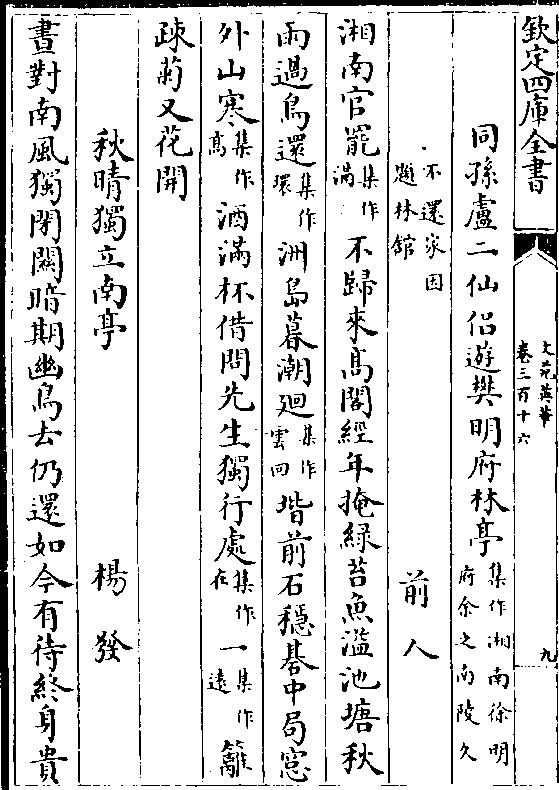 欽定四庫全書
文苑英華
卷三百十六
九
同孫盧二仙侶遊樊明府林亭集作湘南徐明府余之南陵久
不還家因題林館
前人
湘南官罷集作滿不歸來高閣經年掩綠苔魚溢池塘秋
雨過鳥還集作環洲島暮潮廻集作雲回堦前石穩碁中局窓
外山寒集作高酒滿杯借問先生獨行處集作在一集作遠籬
疎菊又花開
秋晴獨立南亭
楊發
晝對南風獨閉關暗期幽鳥去仍還如今有待終身貴